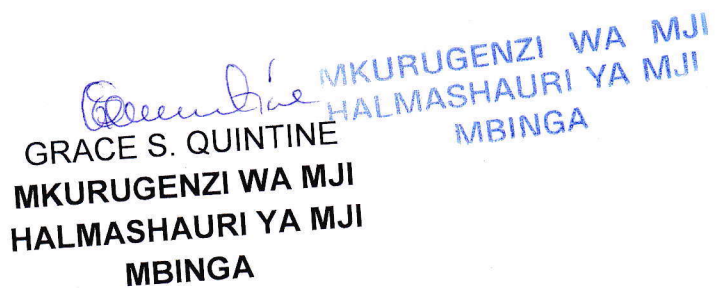 MKURUGENZI WA MJI
HALMASHAURI YA MJI
MBINGA
GRACE S. QUINTINE
MKURUGENZI WA MJI
HALMASHAURI YA MJI
MBINGA